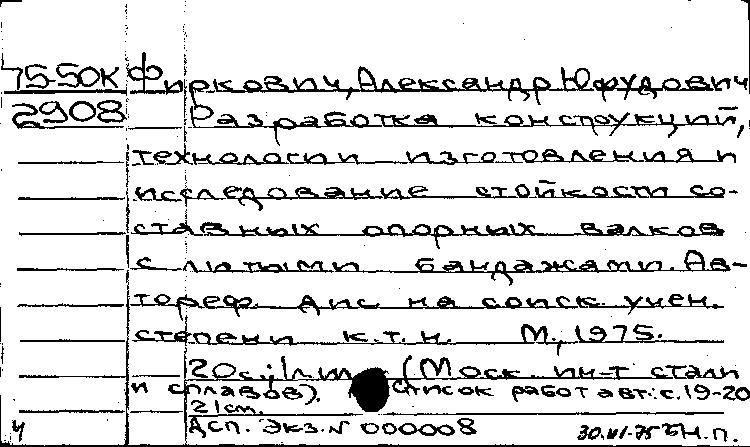 75-50К Фиркович, Александр Юфудович
2908 Разработка конструкций,
технологии изготовления и
исследование стойкости со-
ставных опорных валков
с литыми бандажами. Ав-
тореф. дис на соиск. учен.
степени к.т.н. М., 1975.
20с.; 1л.т. (Моск. ин-т стали
и сплавов). Список работ авт.: с.19-20
21см.
ч ДСП. Экз. N 000008 30.VI-75 Н.П.